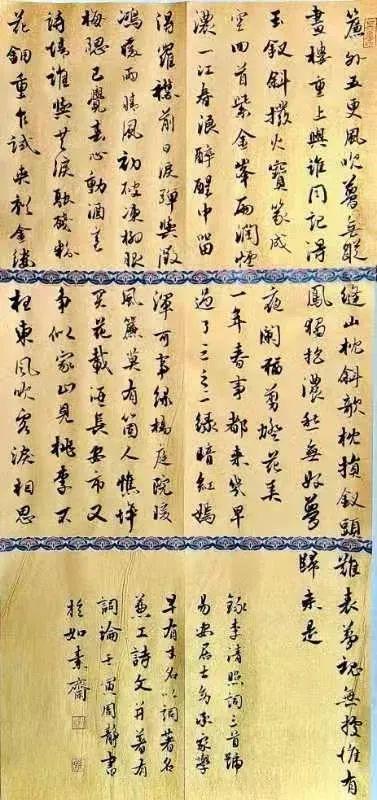 簾外五更風吹夢無蹤
畫樓重上與誰同記得
玉釵斜撥火寶篆成
空回首紫金峯雨潤煙
濃一江春浪醉醒中留
得羅襟前日淚彈與征
鴻暖雨晴風初破凍柳眼
梅腮已覺春心動酒意
詩情誰與共淚融殘粉
花鈿重乍試夾衫金縷
縫山枕斜欹枕損釵頭
鳳獨抱濃愁無好夢
夜闌猶剪燈花弄
一年春事都來幾早
過了三之二綠暗紅嫣
渾可事綠楊庭院暖
風簾莫有箇人憔悴
買花載酒長安市又
爭似家山見桃李不
枉東風吹客淚相思
難表夢魂無據惟有
歸來是
錄李清照詞三首號
易安居士多承家學
早有才名以詞著名
兼工詩文并著有
詞論壬寅周靜書
於如素齋